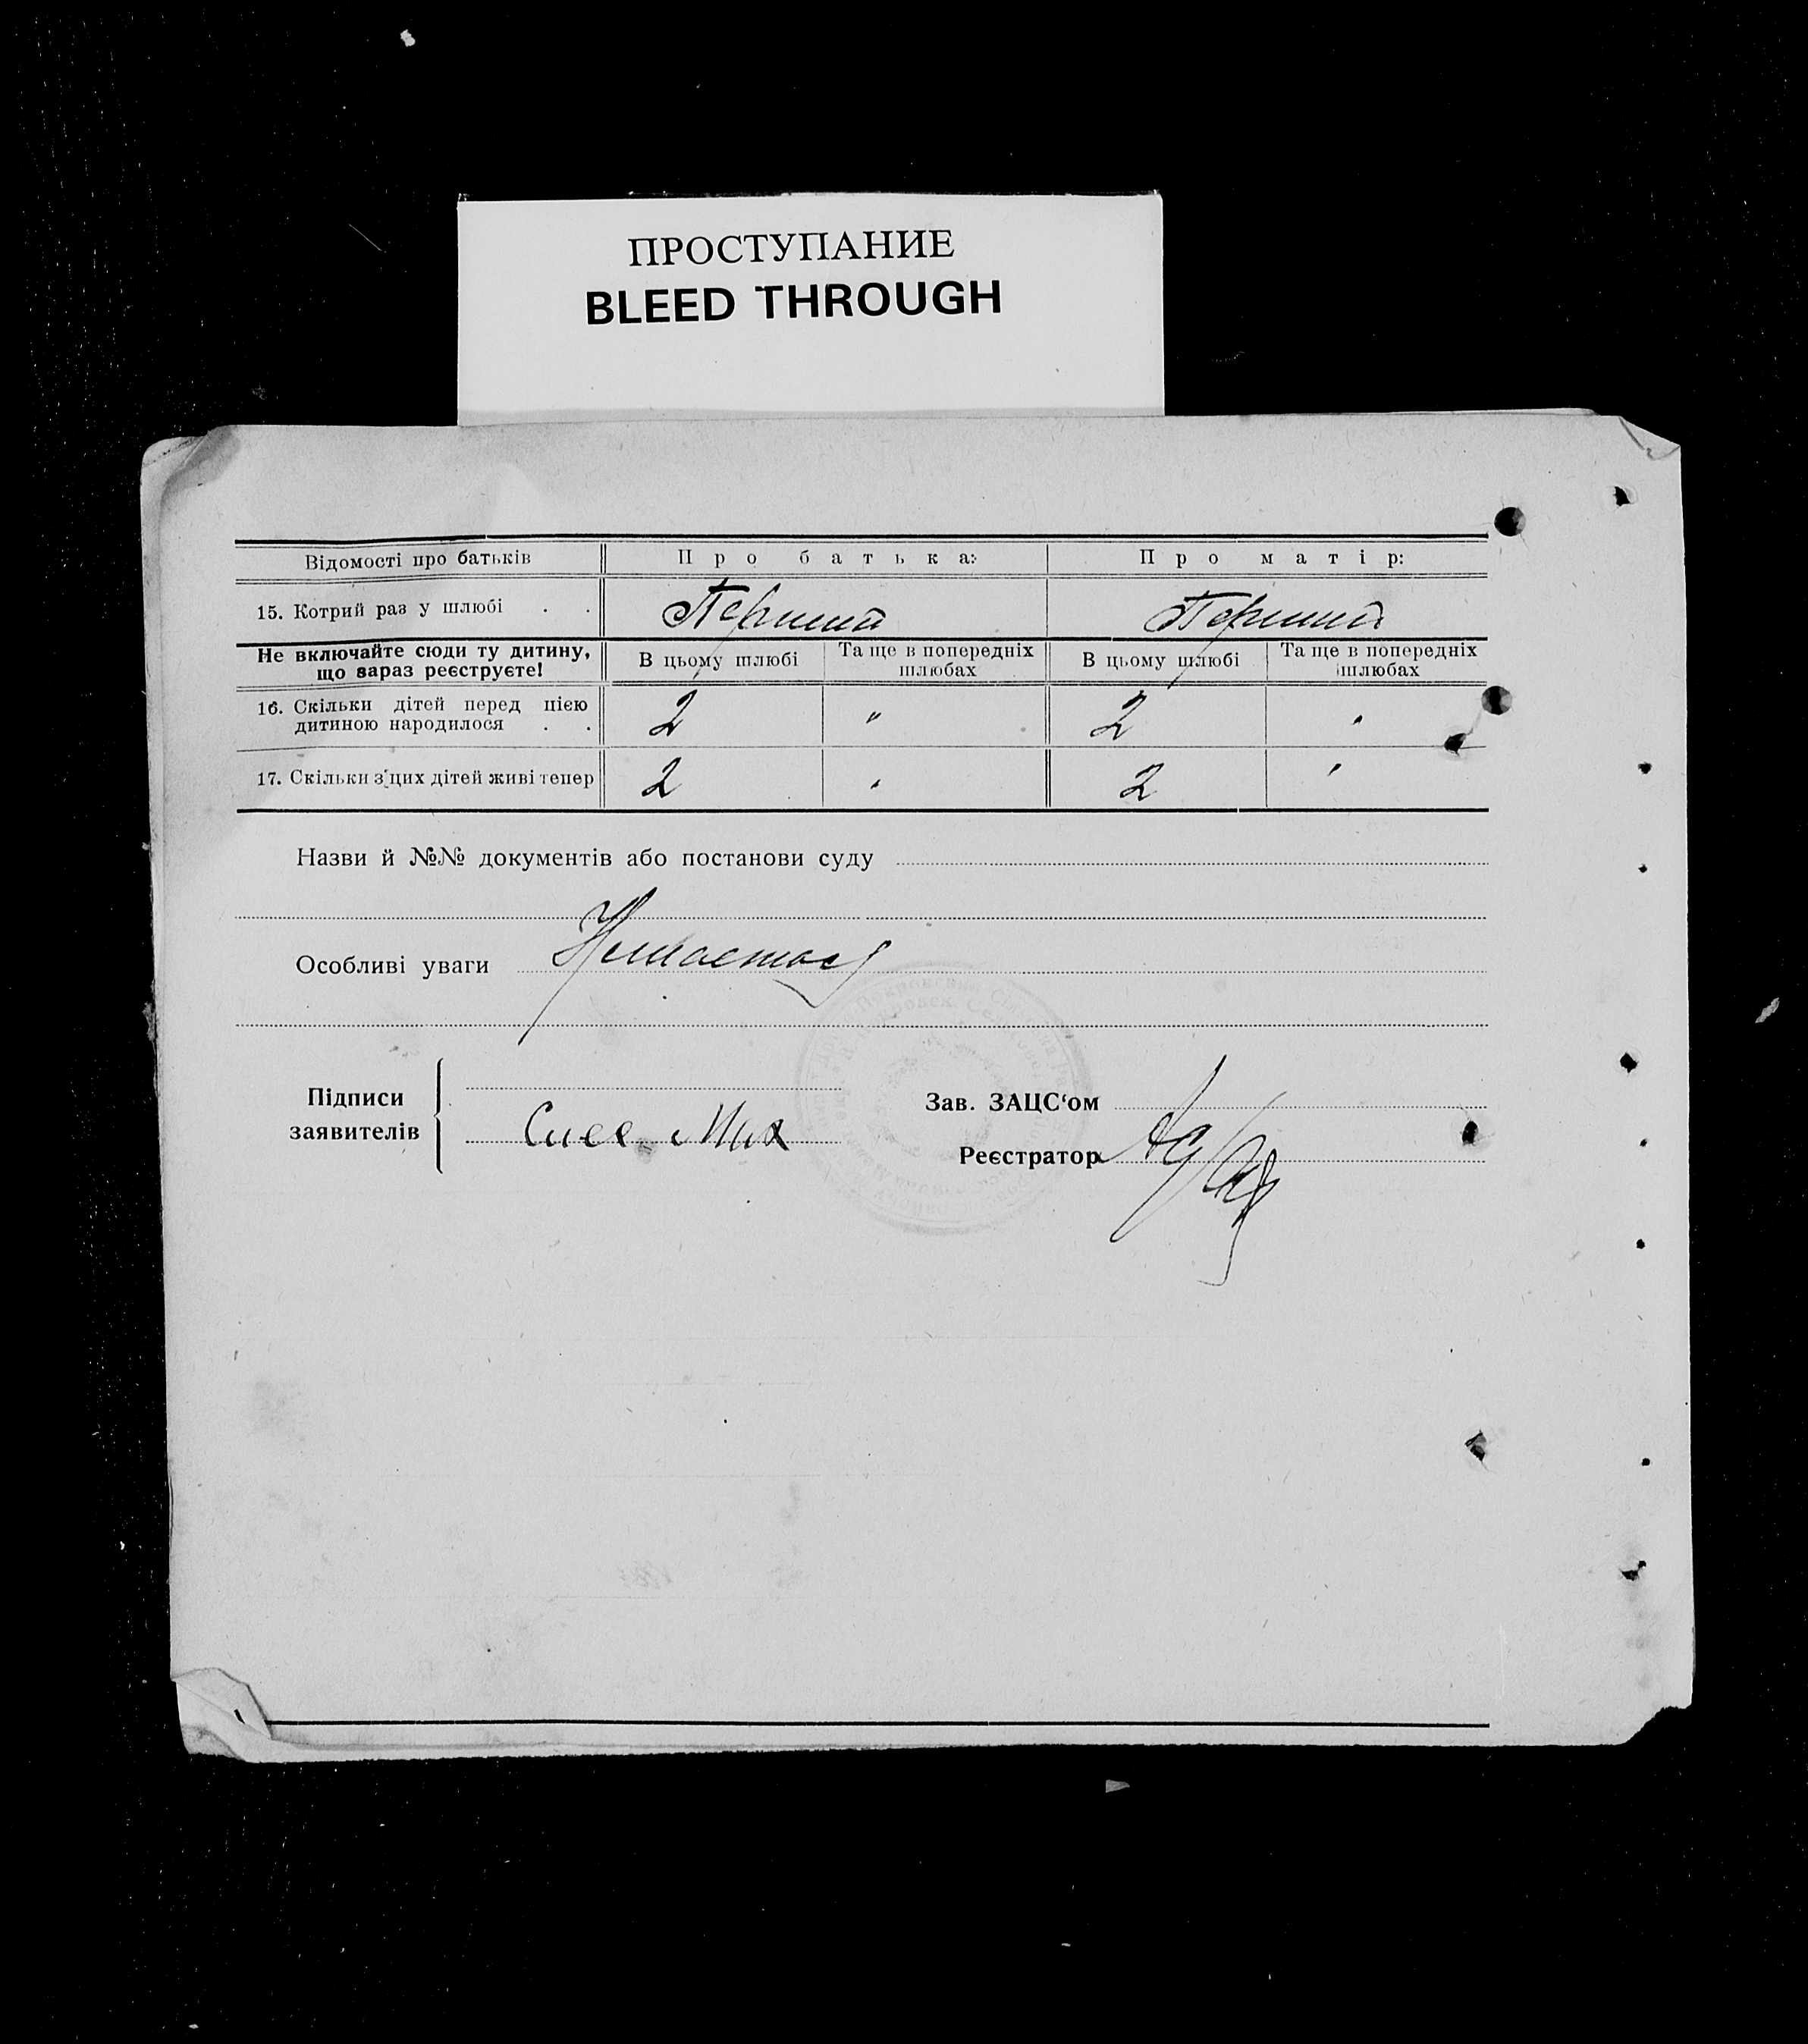 ПРОСТУПАНИЕ
BLEED THROUGH
Відомості про батьків Про батька: Про матір:
15. Котрий раз у шлюбі . . Перший Перший
Не включайте сюди ту дитину, що зараз реєструєте! В цьому шлюбі Та ще в попередніх шлюбах В цьому шлюбі Та ще в попередніх шлюбах
16. Скільки дітей перед цією дитиною народилося . . 2 " 2 "
17. Скільки з цих дітей живі тепер 2 " 2 "
Назви й №№ документів або постанови суду
Особливі уваги
Підписи заявителів
Зав. ЗАЦС'ом
Реєстратор